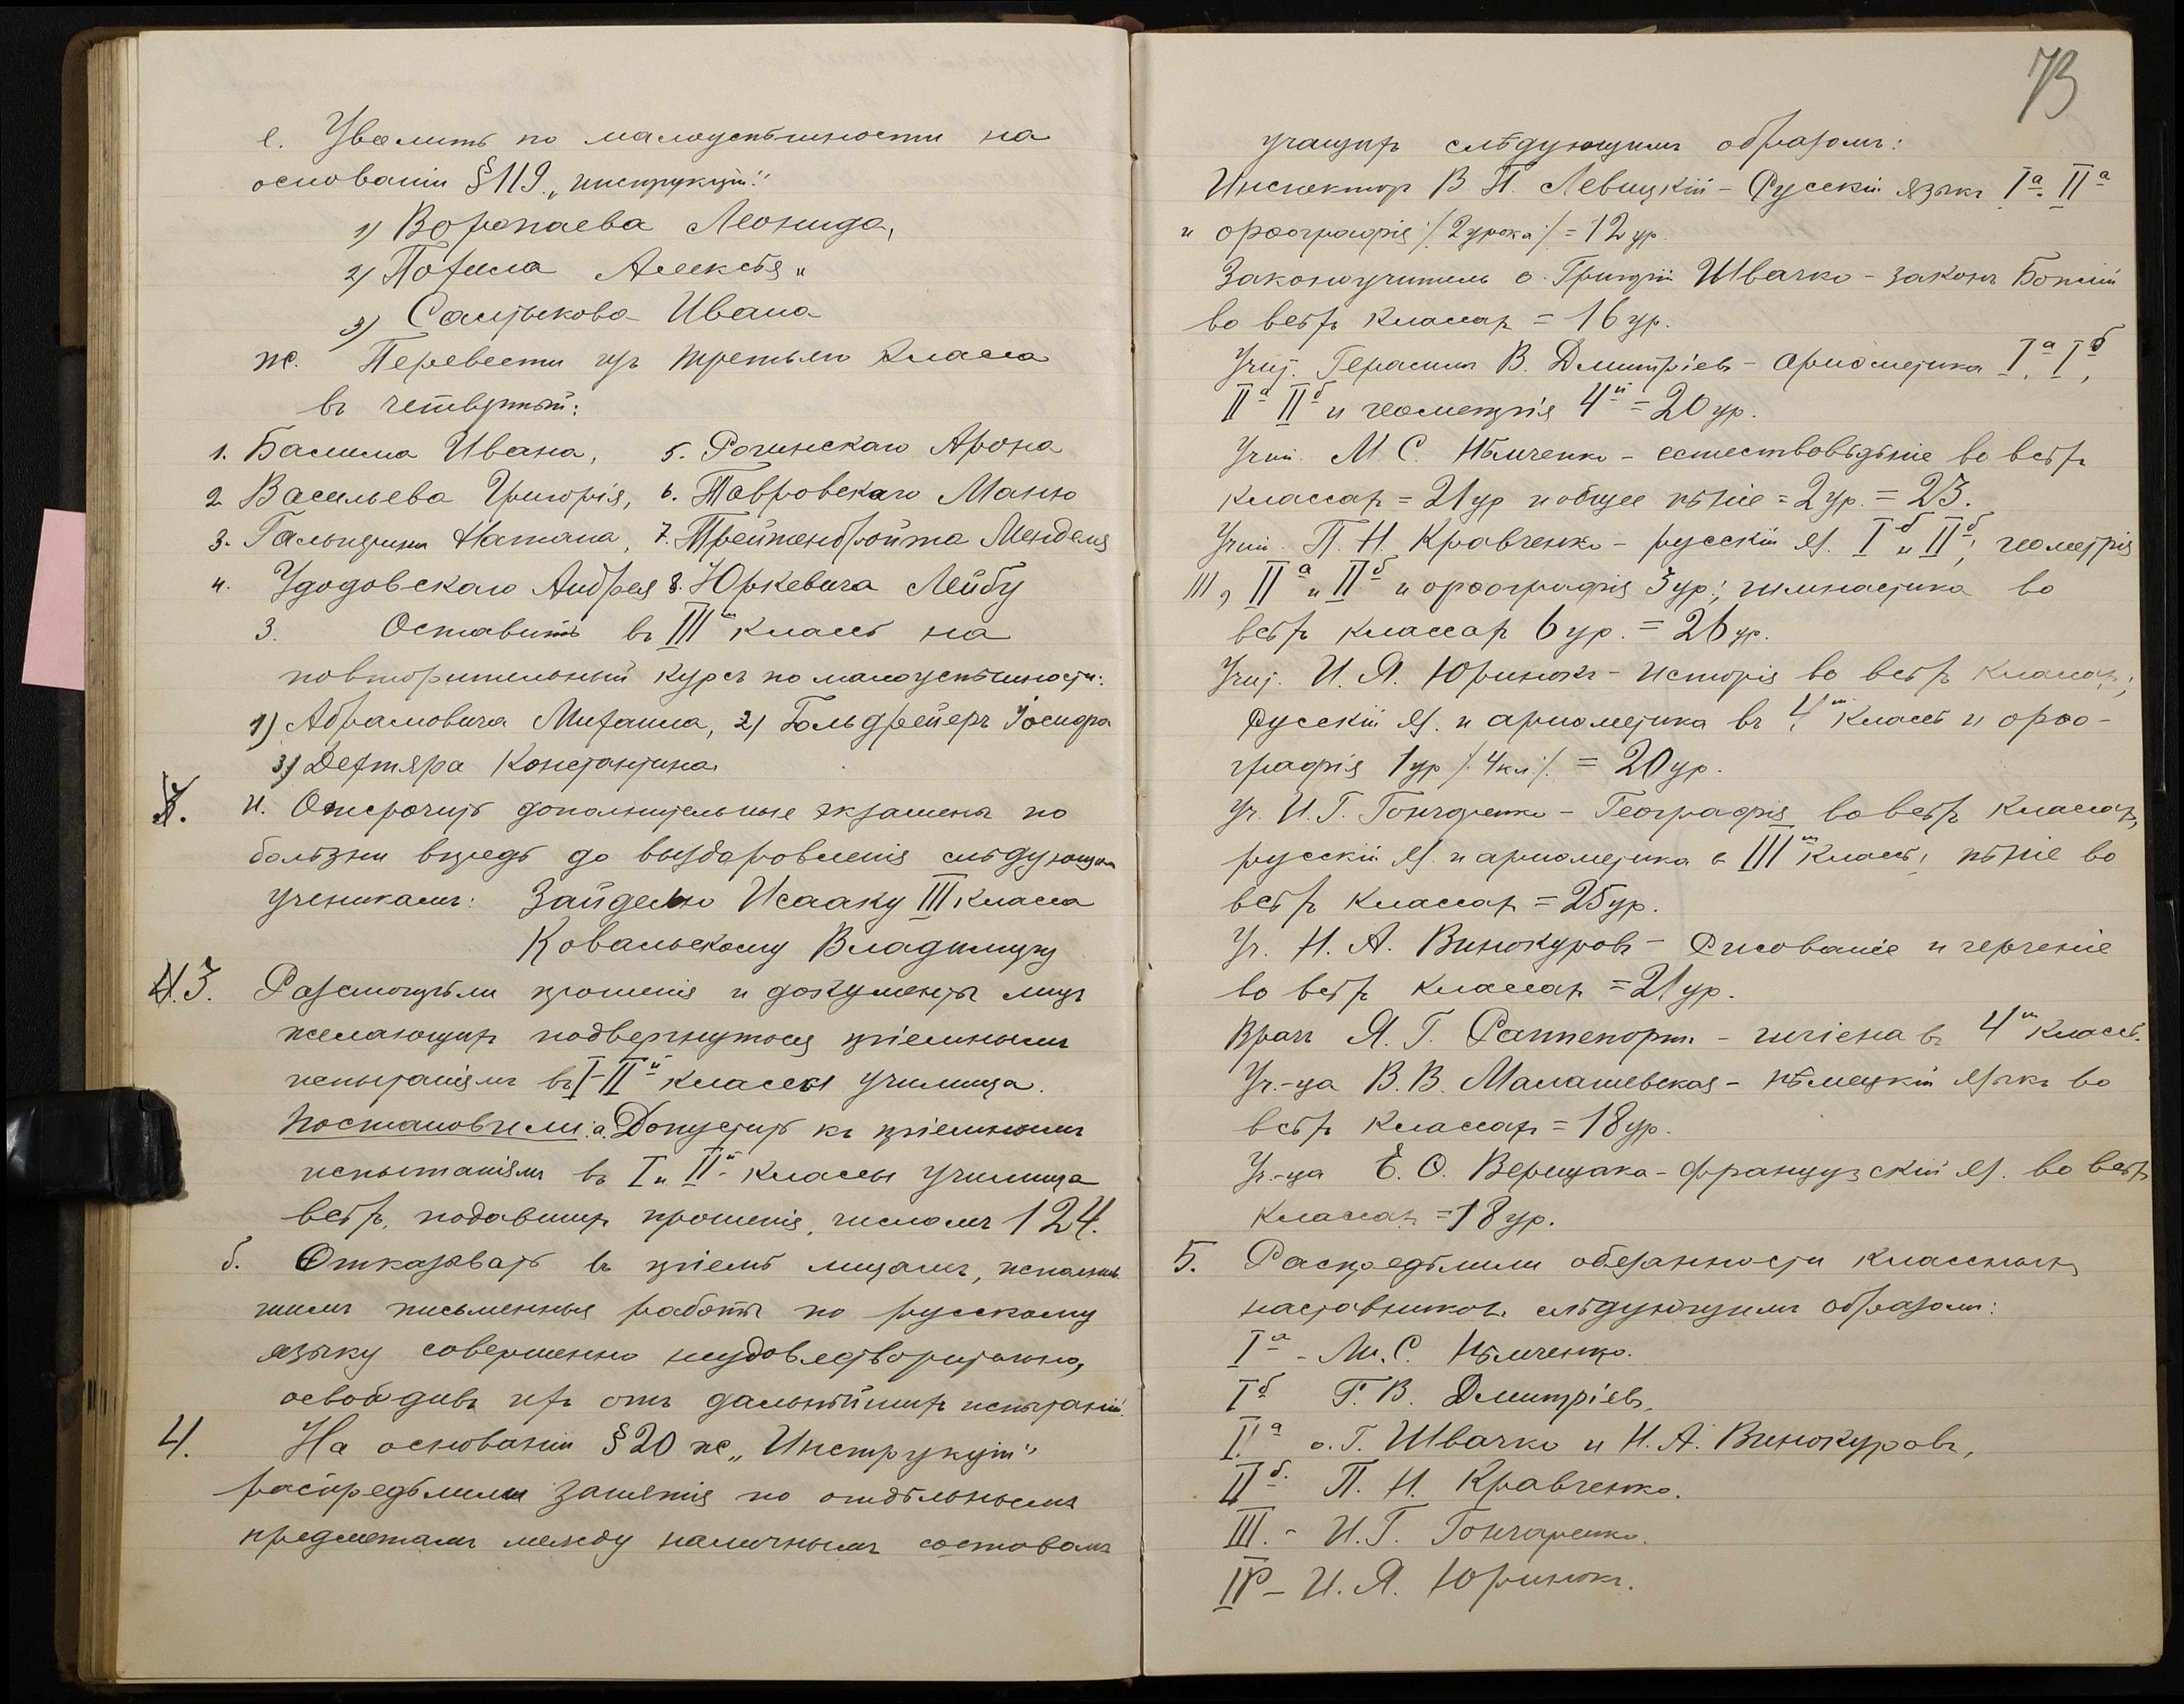 е. Уволить по малоуспѣшности на
основаніи § 119 „инструкціи“:
1) Воропаева Леонида,
2) Похила Алексѣя и
3) Салтыкова Ивана
ж. Перевести изъ третьяго класса
въ четвертый:
1. Балима Ивана, 5. Рогинскаго Арона
2. Васильева Григорія, 6. Тавровскаго Маню
3. Гальперина Натана, 7. Трейтенбройта Менделя
4. Удодовскаго Андрея 8. Юркевича Лейбу
З. Оставить въ IIIм классѣ на
повторительный курсъ по малоуспѣшности:
1) Абрамовича Михаила, 2) Гольдфейеръ Іосифа
3) Дехтяра Константина
и. Отсрочить дополнительные экзамены по
болѣзни впредь до выздоровленія слѣдующимъ
ученикамъ: Зайделю Исааку III класса
Ковальскому Владимиру
3. Разсмотрѣли прошенія и документы лицъ
желающихъ подвергнуться пріемнымъ
испытаніямъ въ I-IIй классы училища.
Постановили: а. Допустить къ пріемнымъ
испытаніямъ въ I и IIй классы училища
всѣхъ, подавшихъ прошенія, числомъ 124.
б. Отказывать въ пріемѣ лицамъ, исполнив-
шимъ письменныя работы по русскому
языку совершенно неудовлетворительно,
освободивъ ихъ отъ дальнѣйшихъ испытаній.
4. На основаніи § 20 ж „Инструкціи“
распредѣлили занятія по отдѣльнымъ
предметамъ между наличнымъ составомъ
73
учащихъ слѣдующимъ образомъ:
Инспекторъ В. П. Левицкій - Русскій языкъ Iа. IIа
и орѳографія /. 2 урока /. = 12 ур.
Законоучитель о. Григорій Швачко - законъ Божій
во всѣхъ классахъ = 16 ур.
Учит. Герасимъ В. Дмитріевъ - ариѳметика Iа, Iб,
IIа IIб и геометрія 4й = 20 ур.
Учит. М. С. Нѣмченко - естествовѣдѣніе во всѣхъ
классахъ = 21 ур и общее пѣніе = 2 ур. = 23.
Учит. П. Н. Кравченко - русскій яз. Iб и IIб; геометрія
III, IIа и IIб и орѳографія 3 ур.; гимнастика во
всѣхъ классахъ 6 ур. = 26 ур.
Учит. И. Я. Юринокъ - Исторія во всѣхъ классахъ;
Русскій яз. и ариѳметика въ 4м классѣ и орѳо-
графія 1 ур /. 4 кл /. = 20 ур.
Уч. И. Г. Гончаренко - Географія во всѣхъ классахъ,
русскій яз. и ариѳметика в IIIм классѣ, пѣніе во
всѣхъ классахъ = 25 ур.
Уч. Н. А. Винокуровъ - Рисованіе и черченіе
во всѣхъ классахъ = 21 ур.
Врачъ Я. Г. Раппепортъ - гигіена въ 4м классѣ.
Уч.-ца В. В. Малашевская - нѣмецкій языкъ во
всѣхъ классахъ = 18 ур.
Уч.-ца Е. О. Верещака - французскій яз. во всѣхъ
классахъ = 18 ур.
5. Распредѣлили обязанности классныхъ
наставниковъ слѣдующимъ образомъ:
Iа - М. С. Нѣмченко.
Iб Г. В. Дмитріевъ,
IIа о. Г. Швачко и Н. А. Винокуровъ,
IIб. П. Н. Кравченко.
III. - И. Г. Гончаренко.
IV - И. Я. Юринокъ.